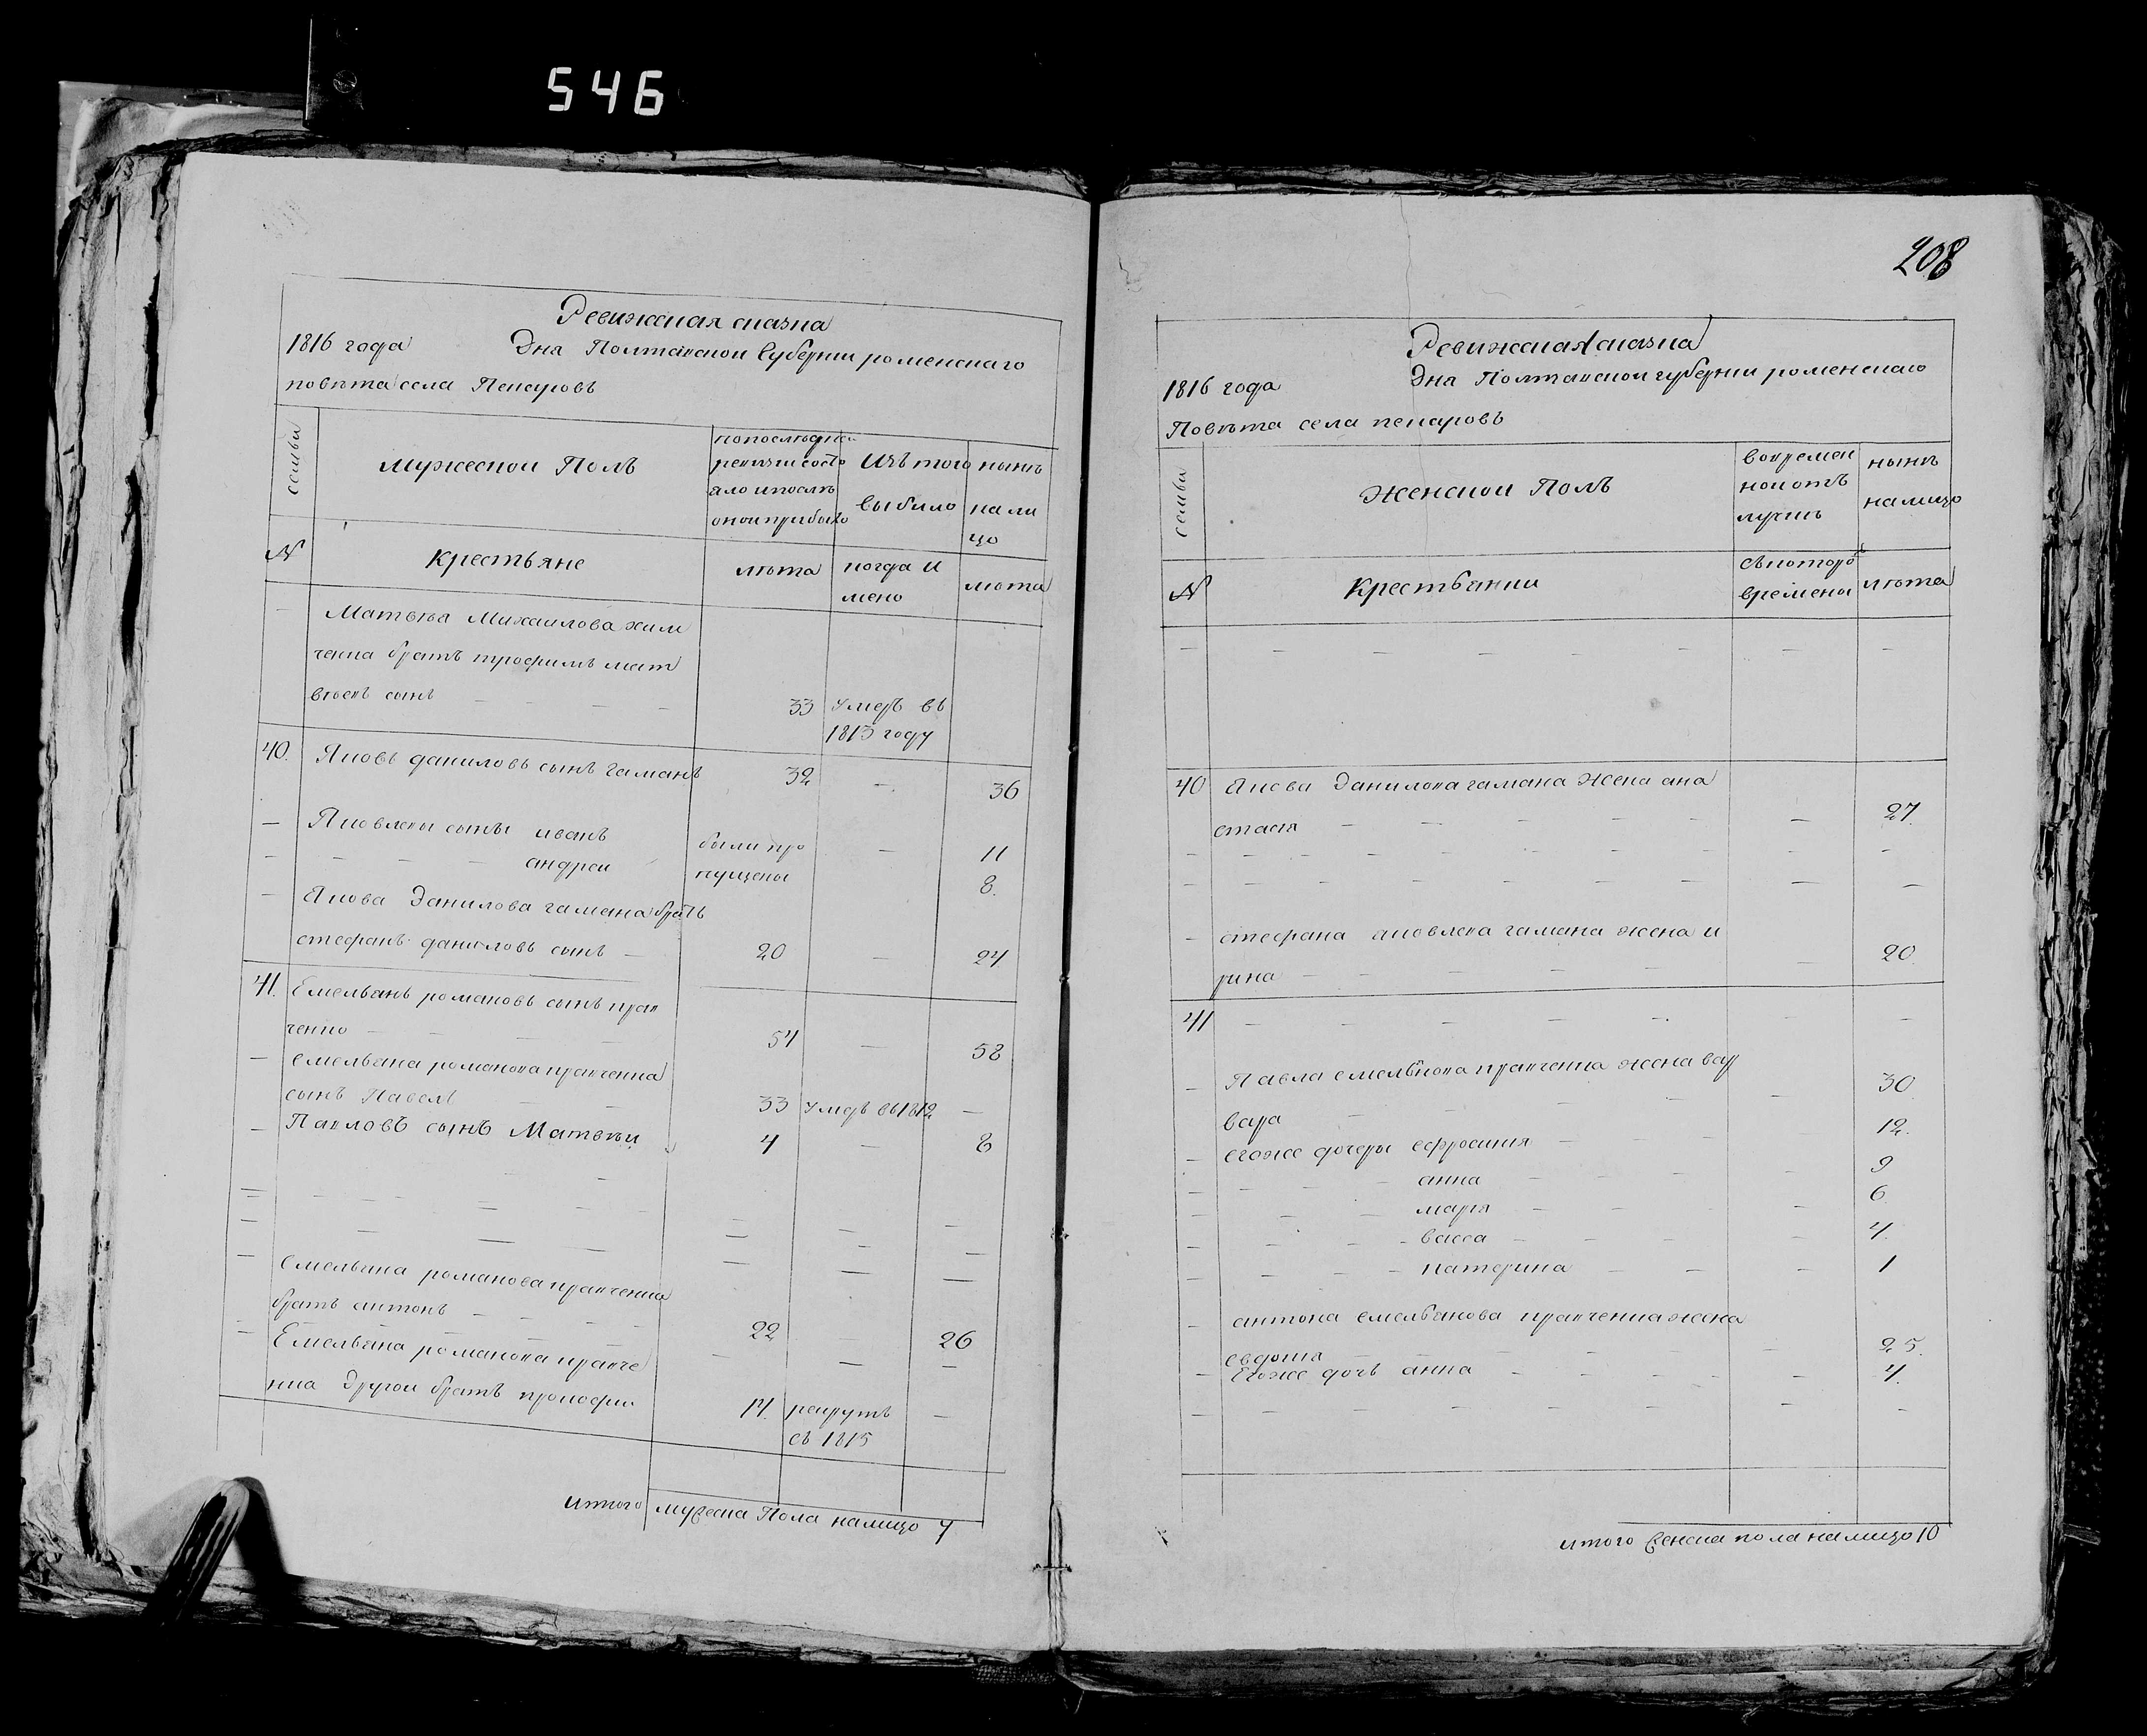 546
Ревижская сказка
1816 года Дня Полтавской Губернии роменскаго
повѣта села Пекаровъ
семьи
мужеской Полъ
попослѣдней
ревизіи состо
яло ипослѣ
оной прибыло
Изъ того
выбыло
нынѣ
нали
цо
№
Крестьяне
лѣта
когда и
мено
лѣта
Матвѣя Михаилова хим
ченка братъ трофимъ мат
вѣевъ сынъ 33 умеръ въ
1813 году
40. Яковъ даниловъ сынъ гаманъ 32 36
Яковлевы сыны иванъ были про 11
андрей пущены 8.
Якова Данилова гамана братъ
стефанъ даниловъ сынъ 20 24
41. Емельянъ романовъ сынъ прав
ченко 54 58
емельяна романова правченка
сынъ Павелъ 33 умеръ въ 1812
Павловъ сынъ Матвѣй 4 8
емельяна романова правченка
братъ антонъ 22 26
Емельяна романова правче
нка Другой братъ прокофий 17. рекрутъ
въ 1815
итого мужеска Пола налицо 7
208
Ревижская сказка
1816 года Дня Полтавской губернии роменскаго
Повѣта села пекаровъ
семьи
Женской Полъ
вовремен
ной отъ
лучкѣ
нынѣ
налицо
№
Крестьянки
съкотораго
времени
лѣта
40 Якова Данилова гамана Жена ана
стасія 27.
стефана яковлева гамана жена и
рина 20
41
Павла емельянова правченка жена вар 30
вара
егоже дочеры ефросиния 12.
анна 9
марія 6
васса 4.
катерина 1
антона емельянова правченка жена
евдокия 25.
Егоже дочь анна 4.
итого женска пола налицо 10